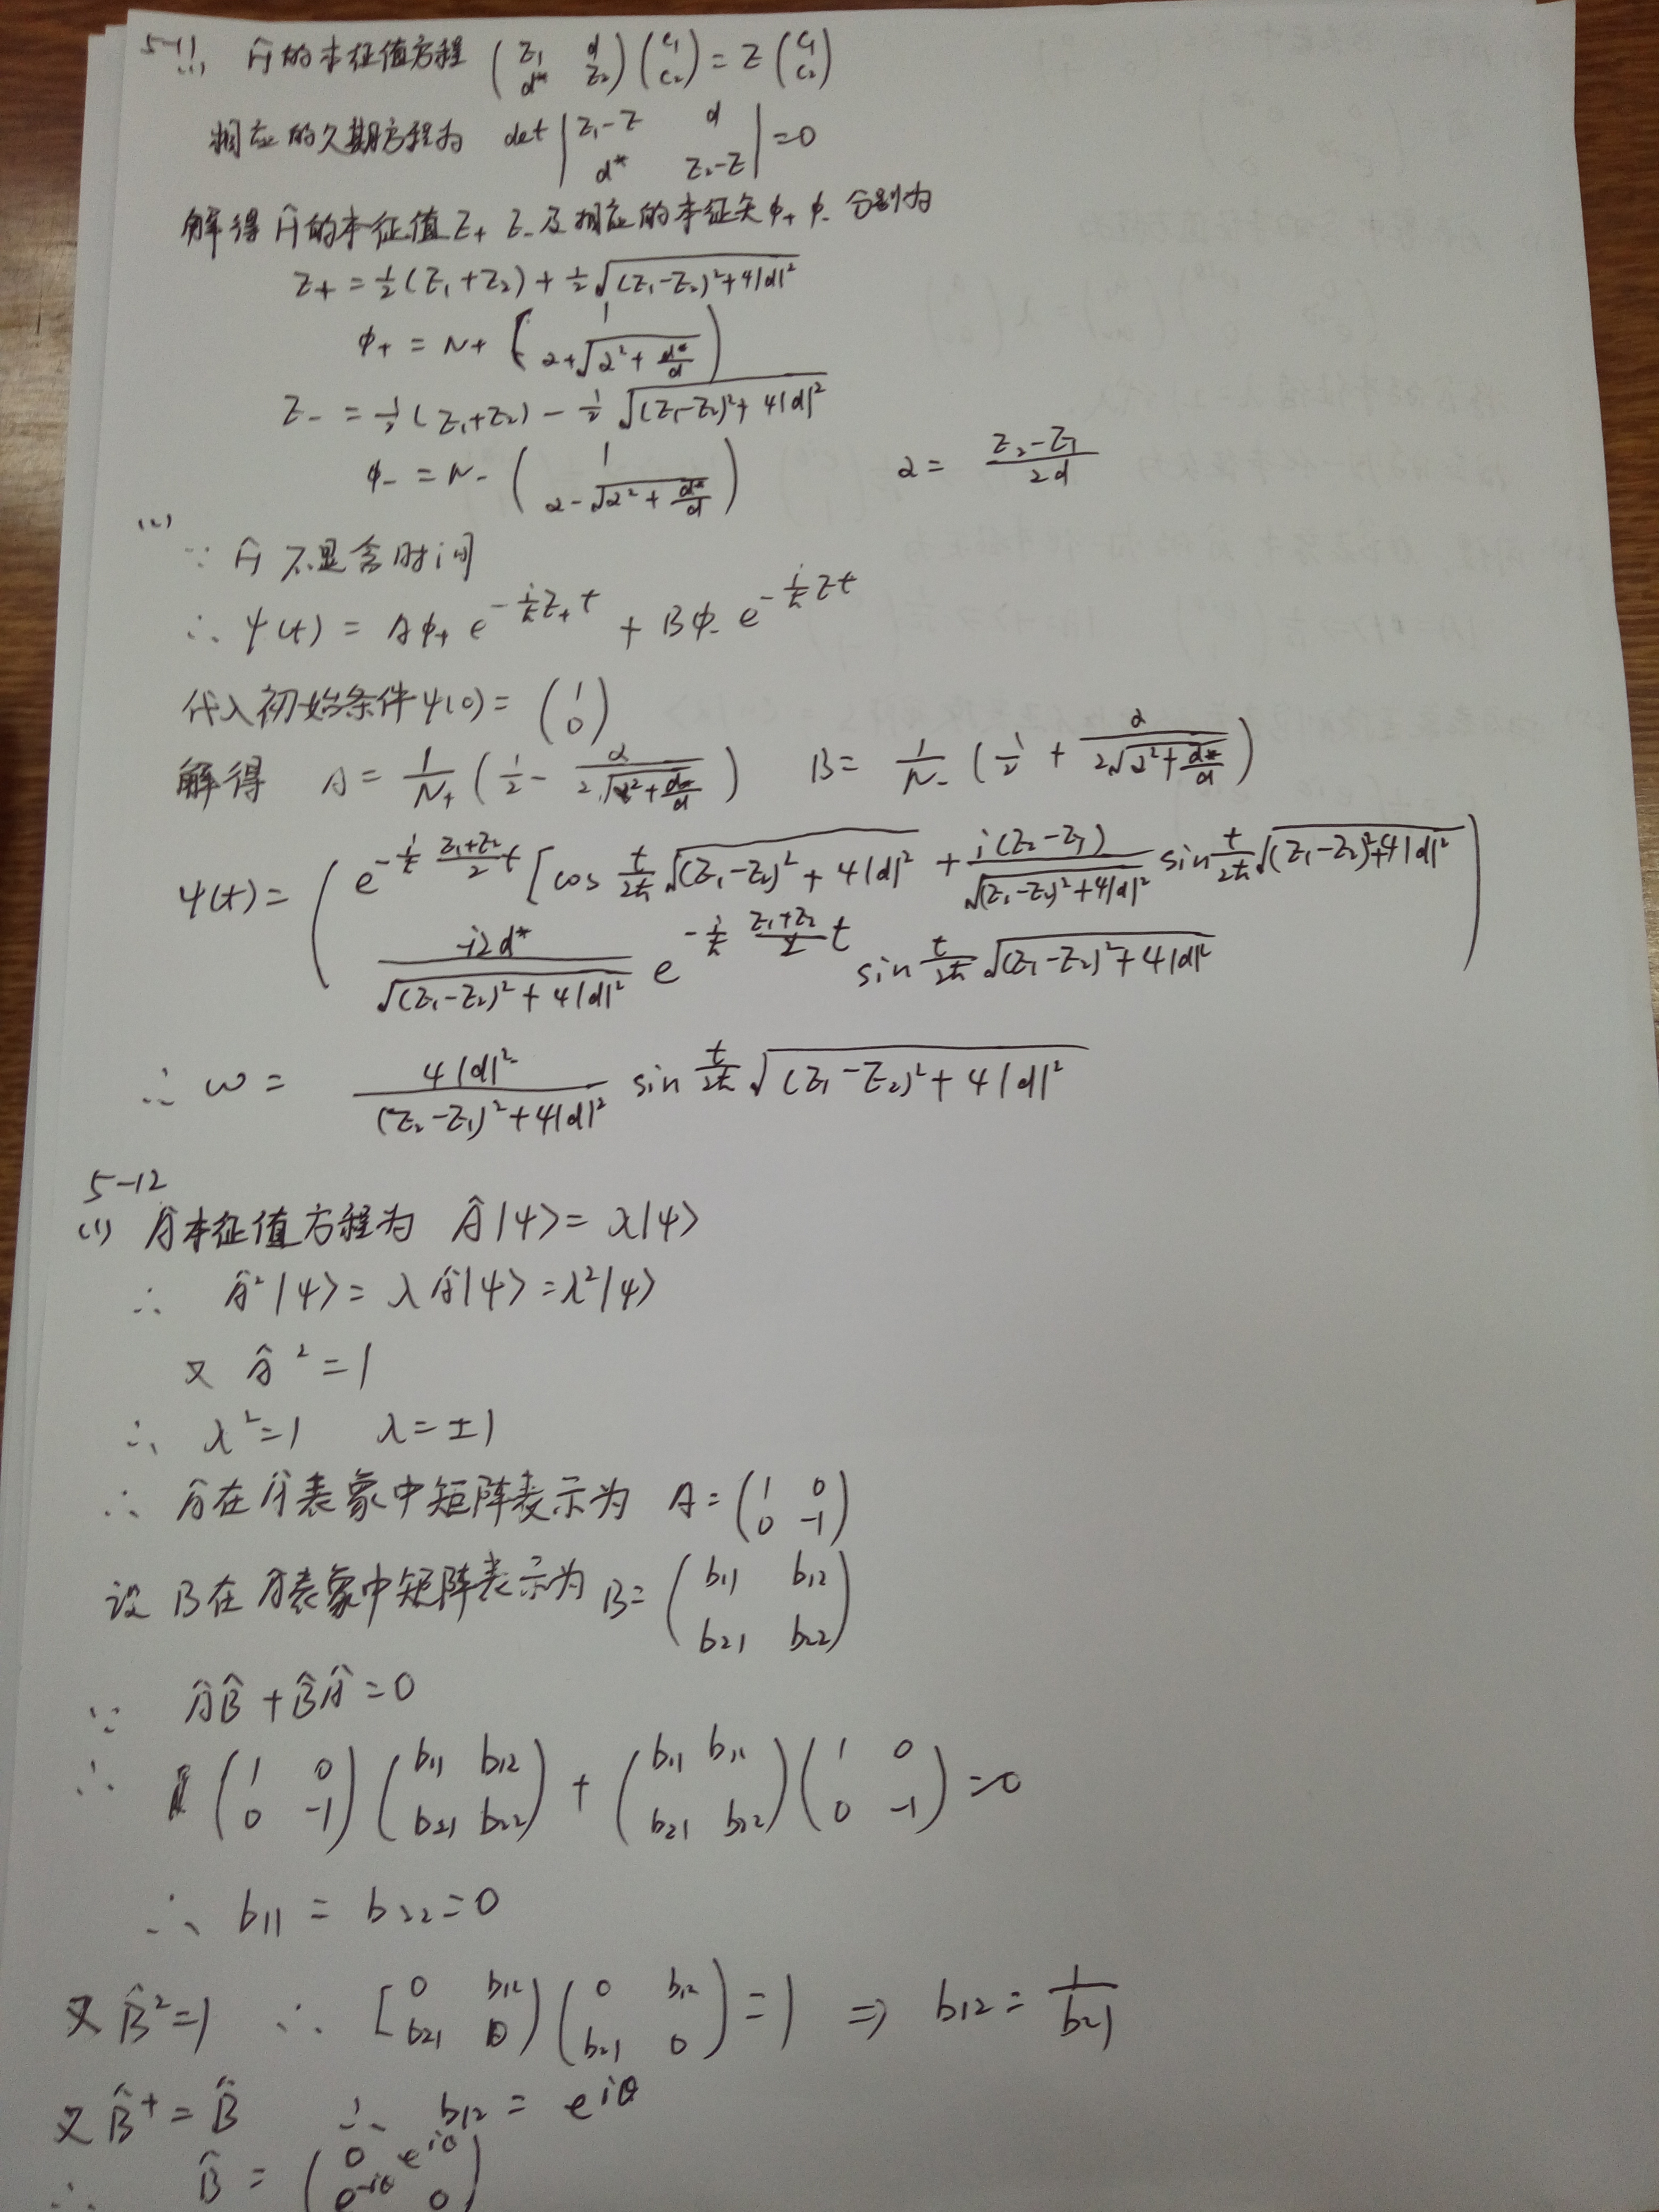 5-11
(1) Ĥ的本征值方程 (E₁ d; d* E₂)(c₁; c₂) = E(c₁; c₂)
相应的久期方程为 det|E₁-E d; d* E₂-E| = 0
解得Ĥ的本征值E₊ E₋及相应的本征矢φ₊ φ₋分别为
E₊ = ½(E₁+E₂) + ½√((E₁-E₂)²+4|d|²)
φ₊ = N₊ (1; α+√(α²+d*/d))
E₋ = ½(E₁+E₂) - ½√((E₁-E₂)²+4|d|²)
φ₋ = N₋ (1; α-√(α²+d*/d)) α = (E₂-E₁)/2d
(2) ∵ Ĥ不显含时间
∴ ψ(t) = Aφ₊e^(-i/ħ E₊t) + Bφ₋e^(-i/ħ Et)
代入初始条件ψ(0) = (1; 0)
解得 A = 1/N₊ (½ - α/(2√(α²+d*/d))) B = 1/N₋ (½ + α/(2√(α²+d*/d)))
ψ(t) = (e^(-i/ħ (E₁+E₂)/2 t)[cos t/2ħ √((E₁-E₂)²+4|d|²) + i(E₂-E₁)/√((E₁-E₂)²+4|d|²) sin t/2ħ √((E₁-E₂)²+4|d|²)
-i2d*/√((E₁-E₂)²+4|d|²) e^(-i/ħ (E₁+E₂)/2 t) sin t/2ħ √((E₁-E₂)²+4|d|²))
∴ ω = 4|d|²/((E₂-E₁)²+4|d|²) sin t/2ħ √((E₁-E₂)²+4|d|²)
5-12
(1) Â本征值方程为 Â|ψ⟩ = λ|ψ⟩
∴ Â²|ψ⟩ = λÂ|ψ⟩ = λ²|ψ⟩
又 Â² = 1
∴ λ² = 1 λ = ±1
∴ Â在Â表象中矩阵表示为 A = (1 0; 0 -1)
设B在Â表象中矩阵表示为 B = (b₁₁ b₁₂; b₂₁ b₂₂)
∵ ÂB̂ + B̂Â = 0
∴ (1 0; 0 -1)(b₁₁ b₁₂; b₂₁ b₂₂) + (b₁₁ b₁₁; b₂₁ b₂₂)(1 0; 0 -1) = 0
∴ b₁₁ = b₂₂ = 0
又B̂² = 1 ∴ [0 b₁₂; b₂₁ 0)(0 b₁₂; b₂₁ 0) = 1 ⇒ b₁₂ = 1/b₂₁
又B̂⁺ = B̂ ∴ b₁₂ = e^(iθ)
∴ B̂ = (0 e^(iθ); e^(-iθ) 0)